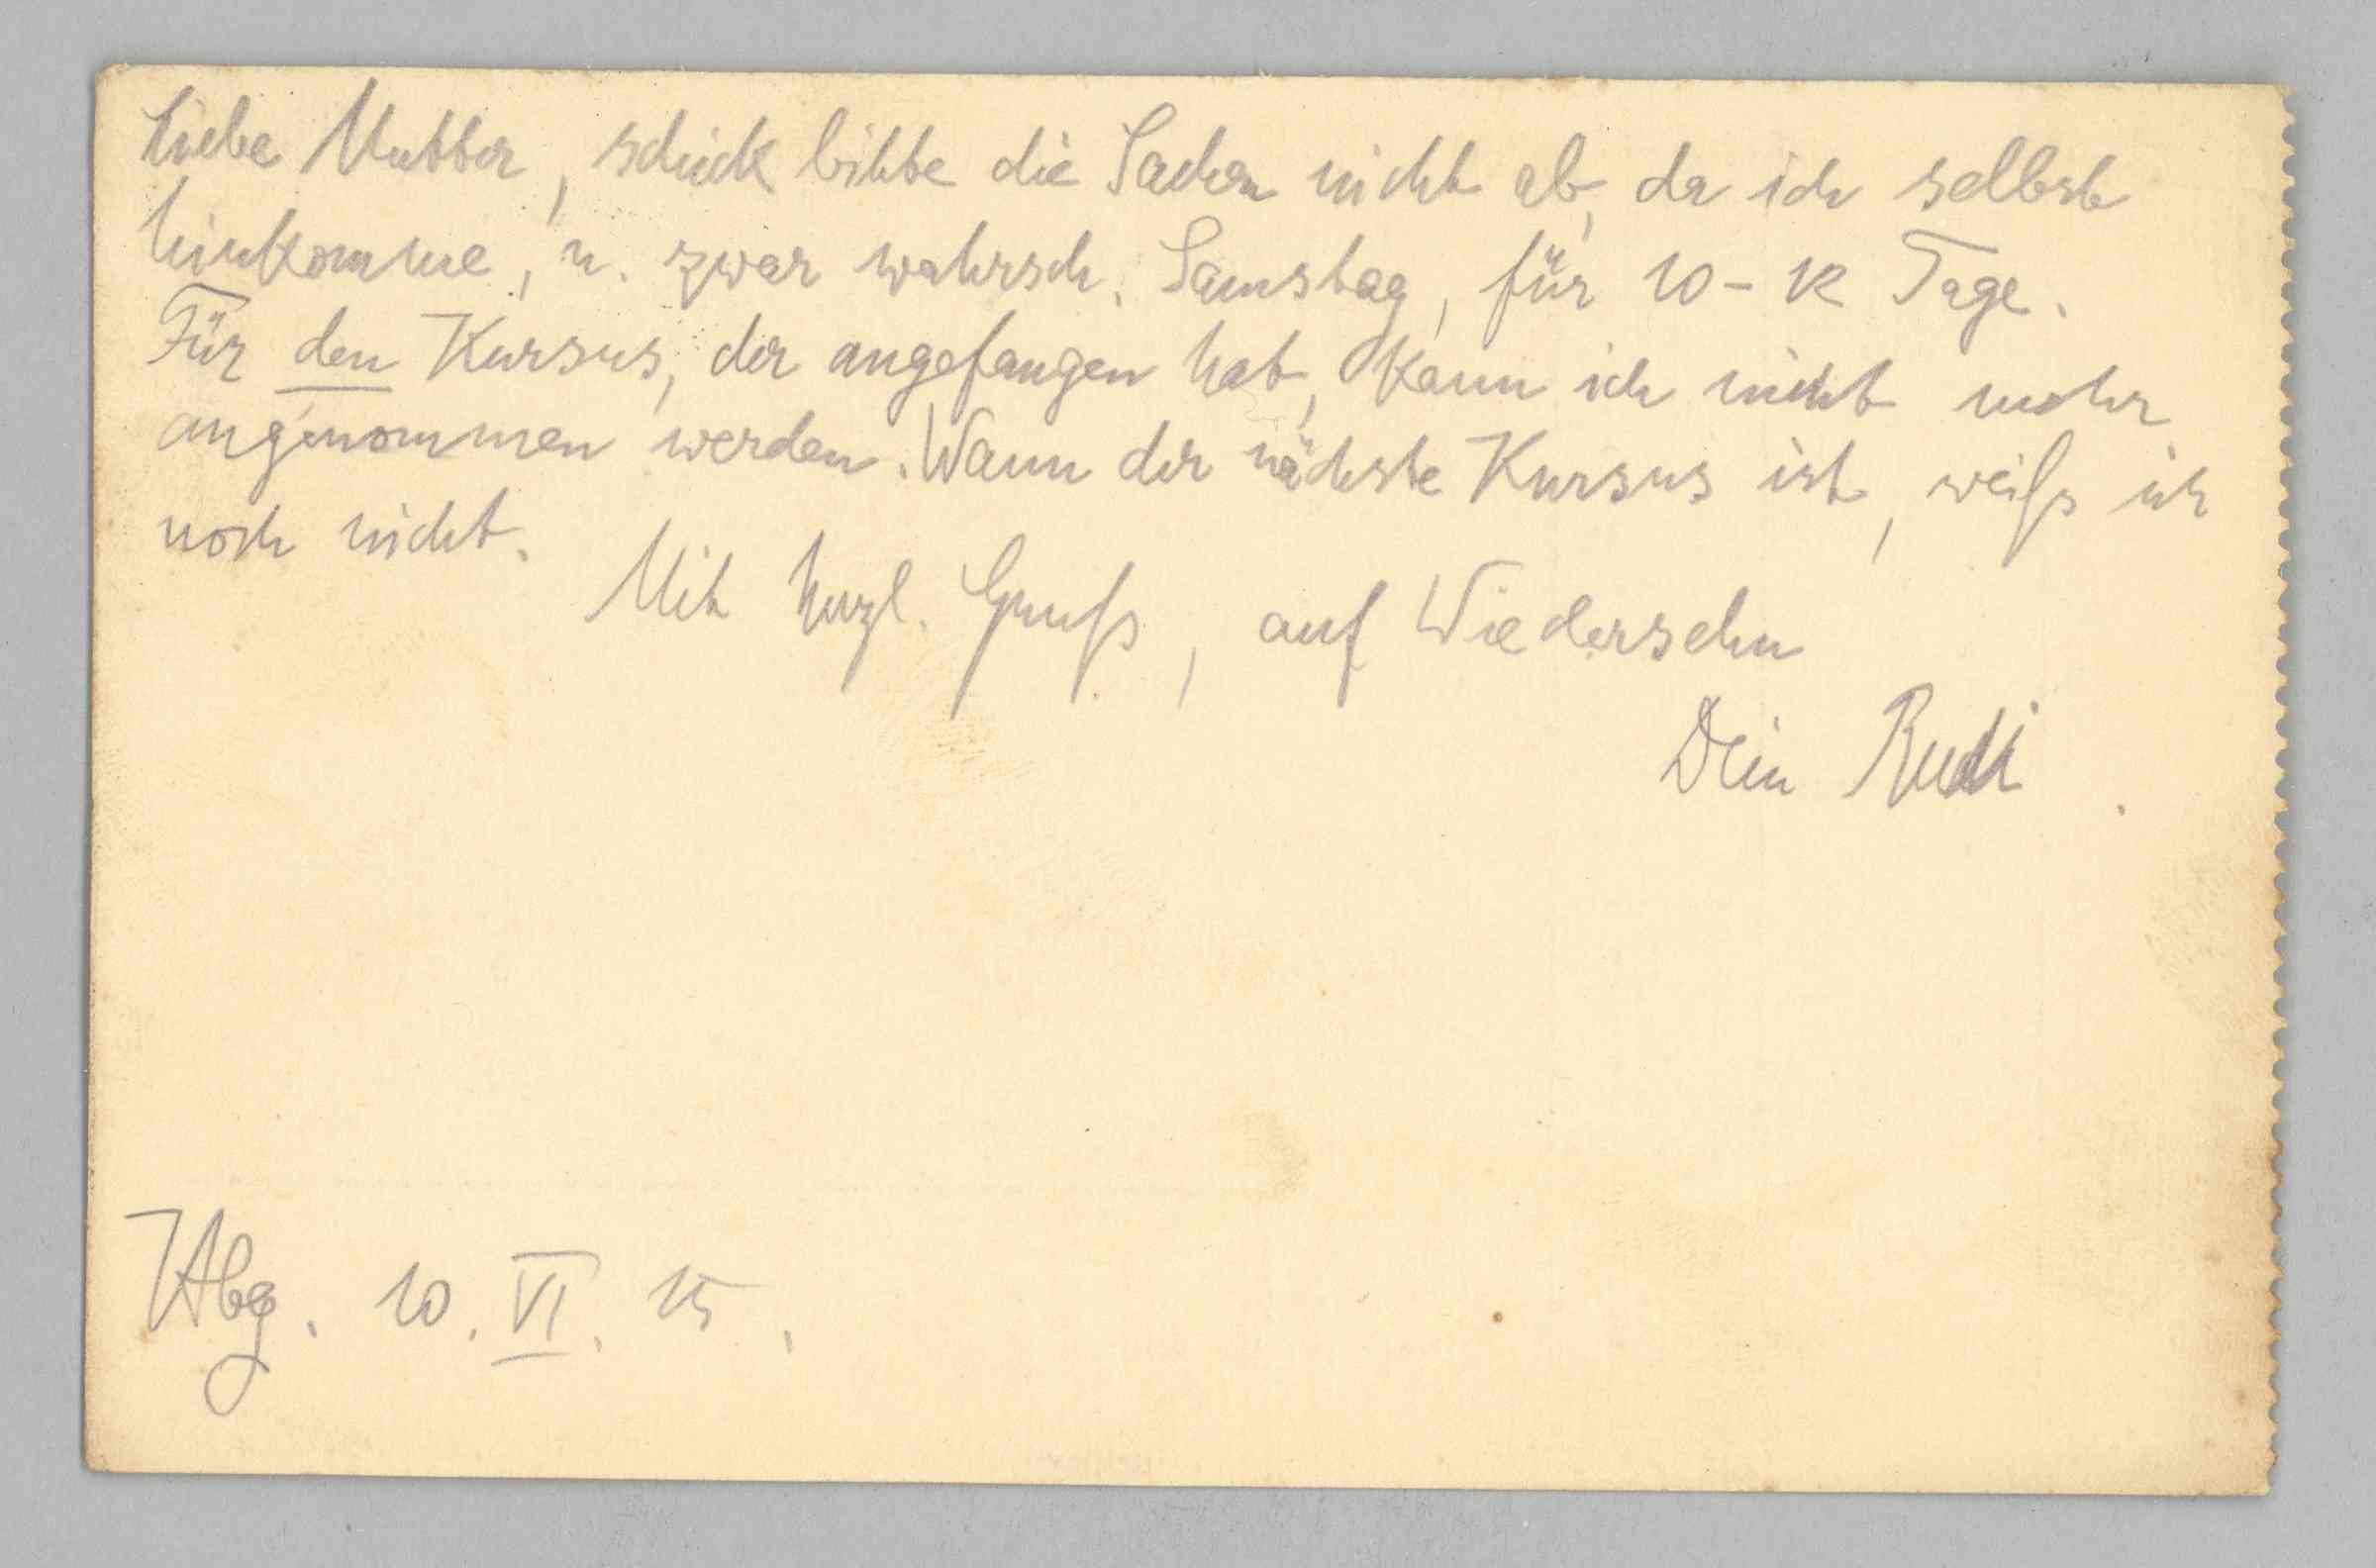 Liebe Mutter, schick bitte die Sachen nicht ab, da ich selbst
hinkomme, u. zwar wahrsch. Samstag, für 10-12 Tage.
Für den Kursus, der angefangen hat, kann ich nicht mehr
angenommen werden. Wann der nächste Kursus ist, weiß ich
noch nicht.
Mit herzl. Gruß, auf Wiedersehn
Dein Rudi
10. VI. 15.